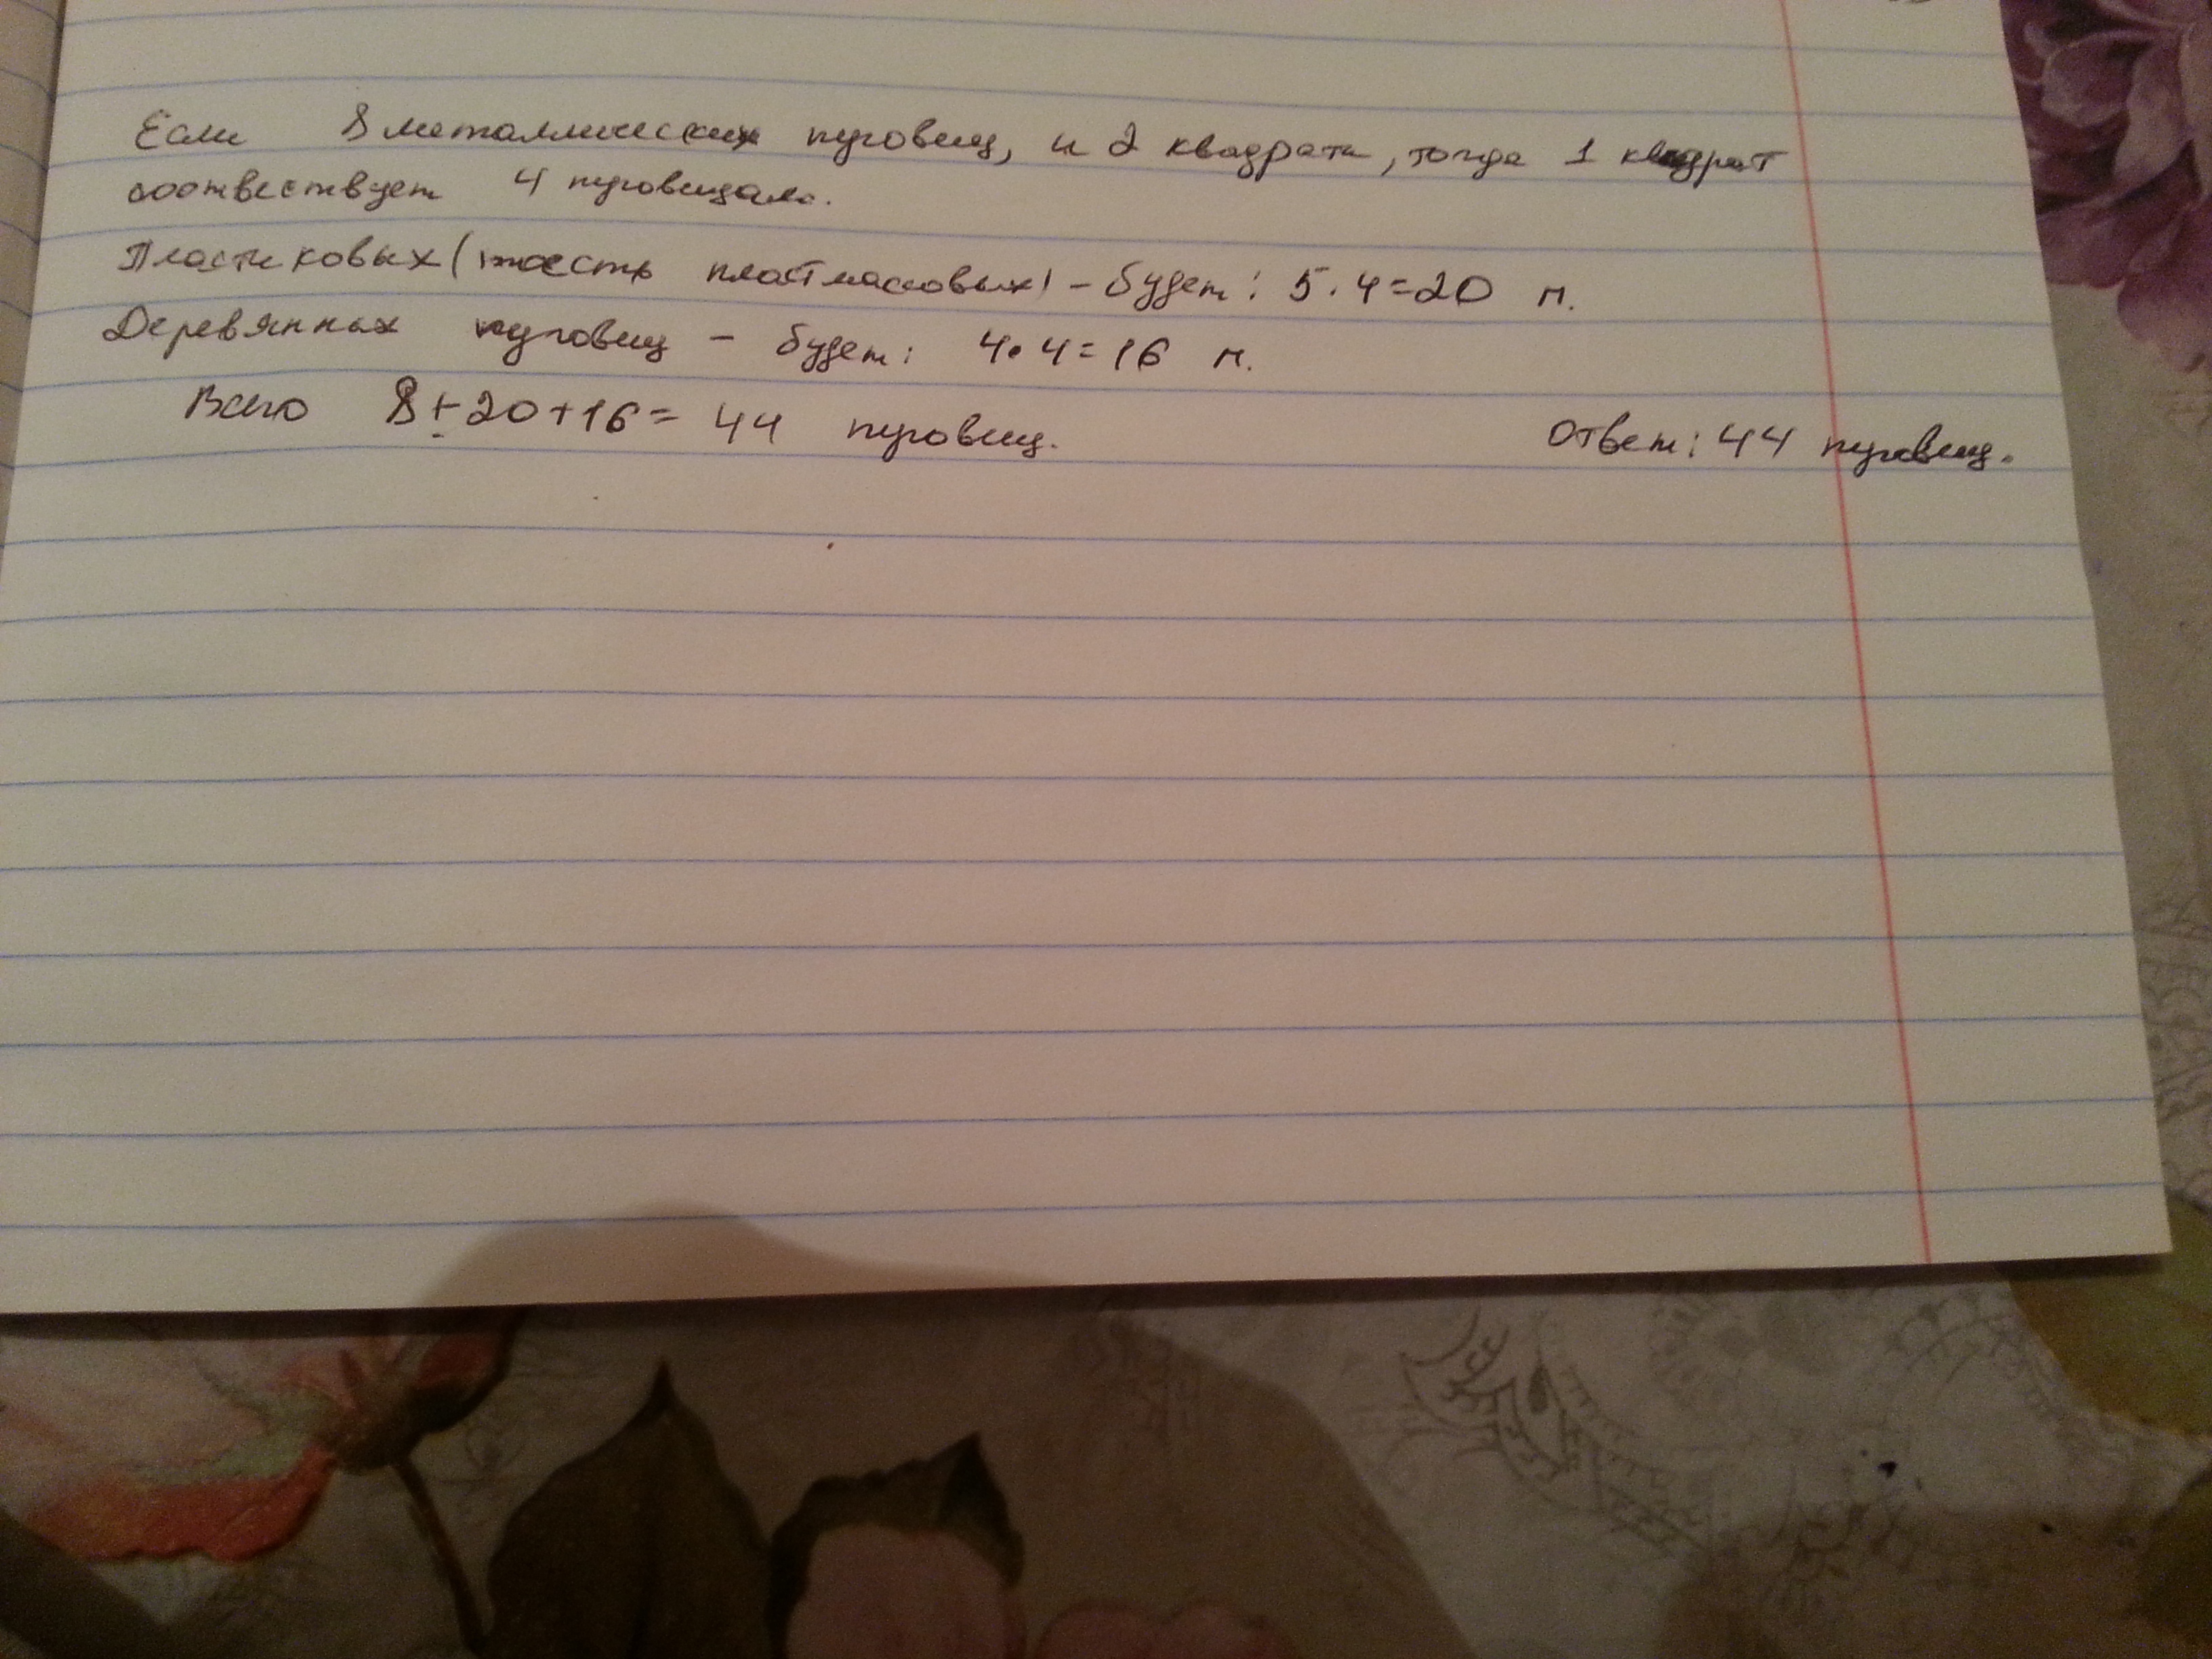 Если 8 металлических пуговиц, и 2 квадрата, тогда 1 квадрат
соотвествует 4 пуговицам.
Пластиковых (тоесть пластмасовых) - будет: 5·4=20 п.
Деревянных пуговиц - будет: 4·4=16 п.
Всего 8+20+16= 44 пуговиц. Ответ: 44 пуговиц.